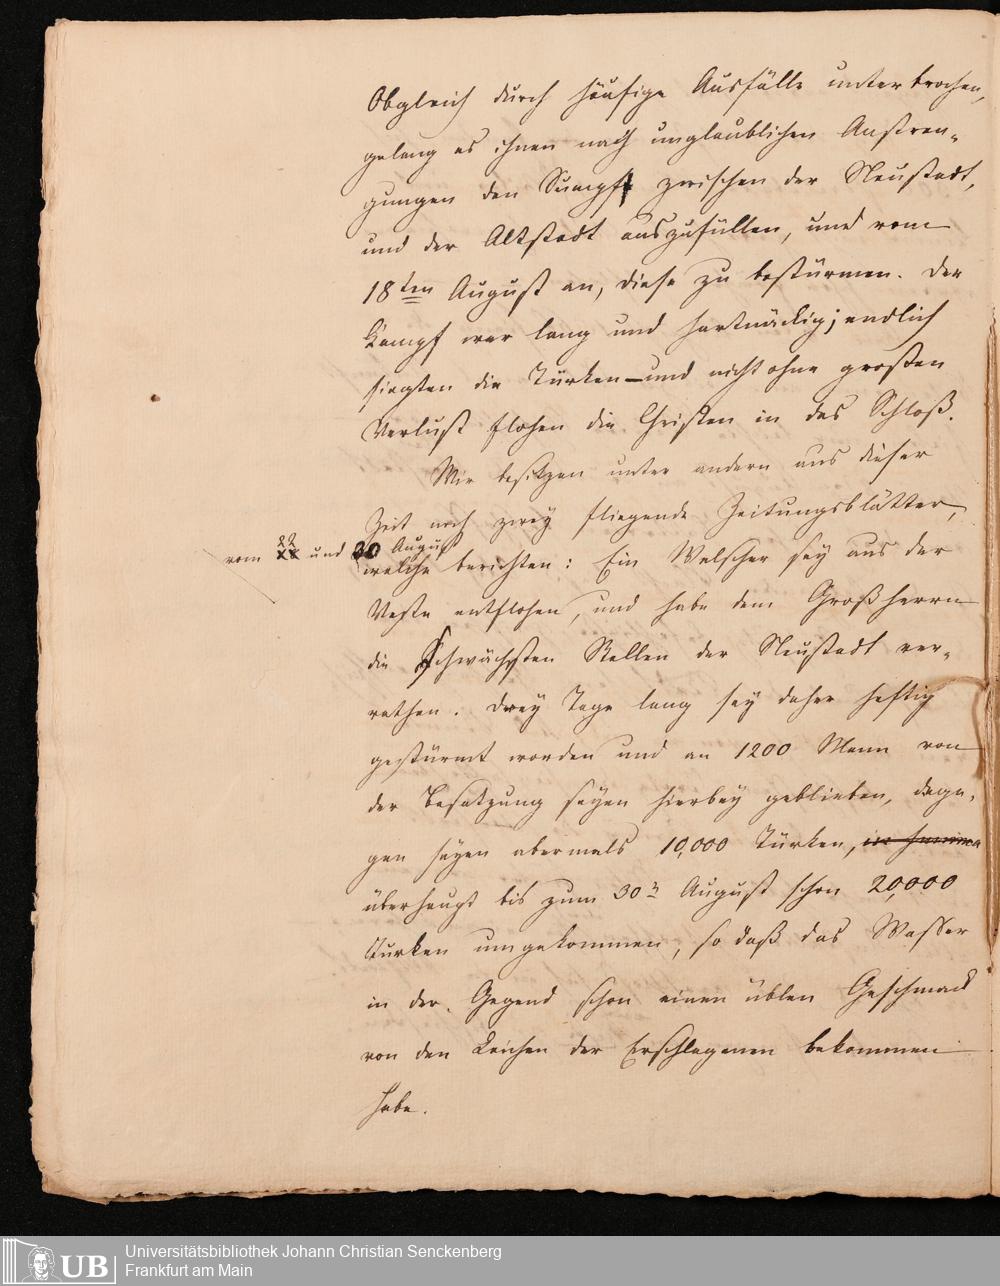 Obgleich durch häufige Ausfälle unterbrochen,
gelang es ihnen nach unglaublichen Anstren-
gungen den Sumpf zwischen der Neustadt,
und der Altstadt auszufüllen, und vom
18ten August an, diese zu bestürmen. Der
Kampf war lang und hartnäckig; endlich
siegten die Türken – und nicht ohne großen
Verlust flohen die Christen in das Schloß.
Wir besitzen unter andern aus dieser
Zeit noch zwey fliegende Zeitungsblätter,
vom 22 und 30 August
welche berichten: Ein Welscher sey aus der
Veste entflohen, und habe dem Großherrn
die schwächsten Stellen der Neustadt ver-
rathen. Drey Tage lang sey daher heftig
gestürmt worden und an 1200 Mann von
der Besatzung seyen hierbey geblieben, dage-
gen seyen abermals 10,000 Türken, in Summa
überhaupt bis zum 30n August schon 20,000
Türken umgekommen, so daß das Wasser
in der Gegend schon einen üblen Geschmack
von den Leichen der Erschlagenen bekommen
habe.
UB
Universitätsbibliothek Johann Christian Senckenberg
Frankfurt am Main